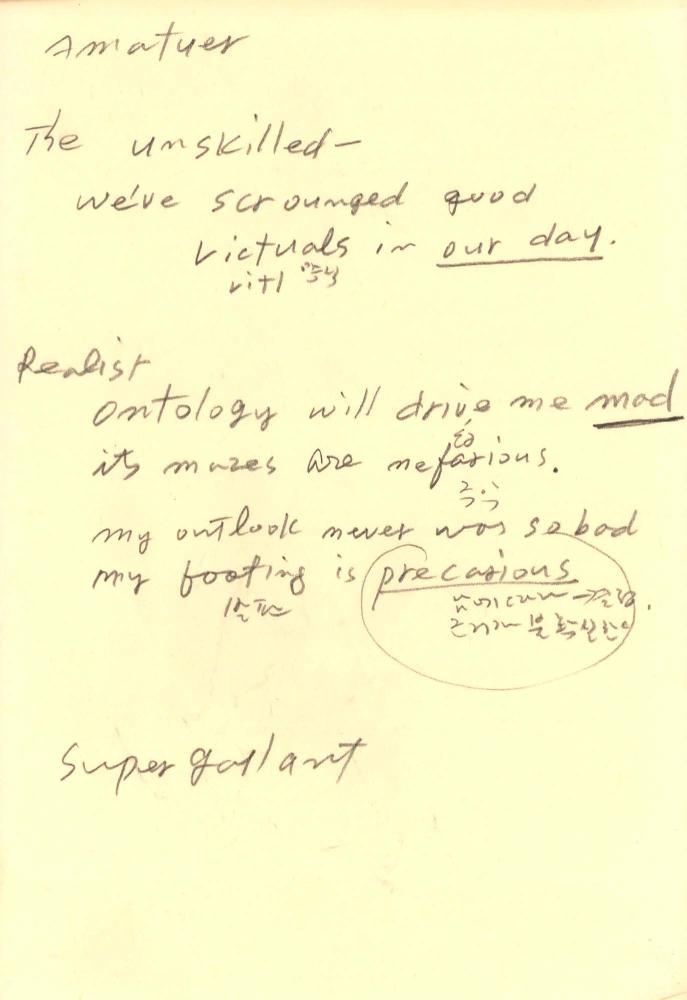 Amatuer
The unskilled—
we've scrounged good
victuals in our day.
vitl 음식
Realist
ontology will drive me mad
its mazes are nefarious.
극악
my outlook never was so bad
my footing is precarious
발판
근거가 불확실한
Super gallant